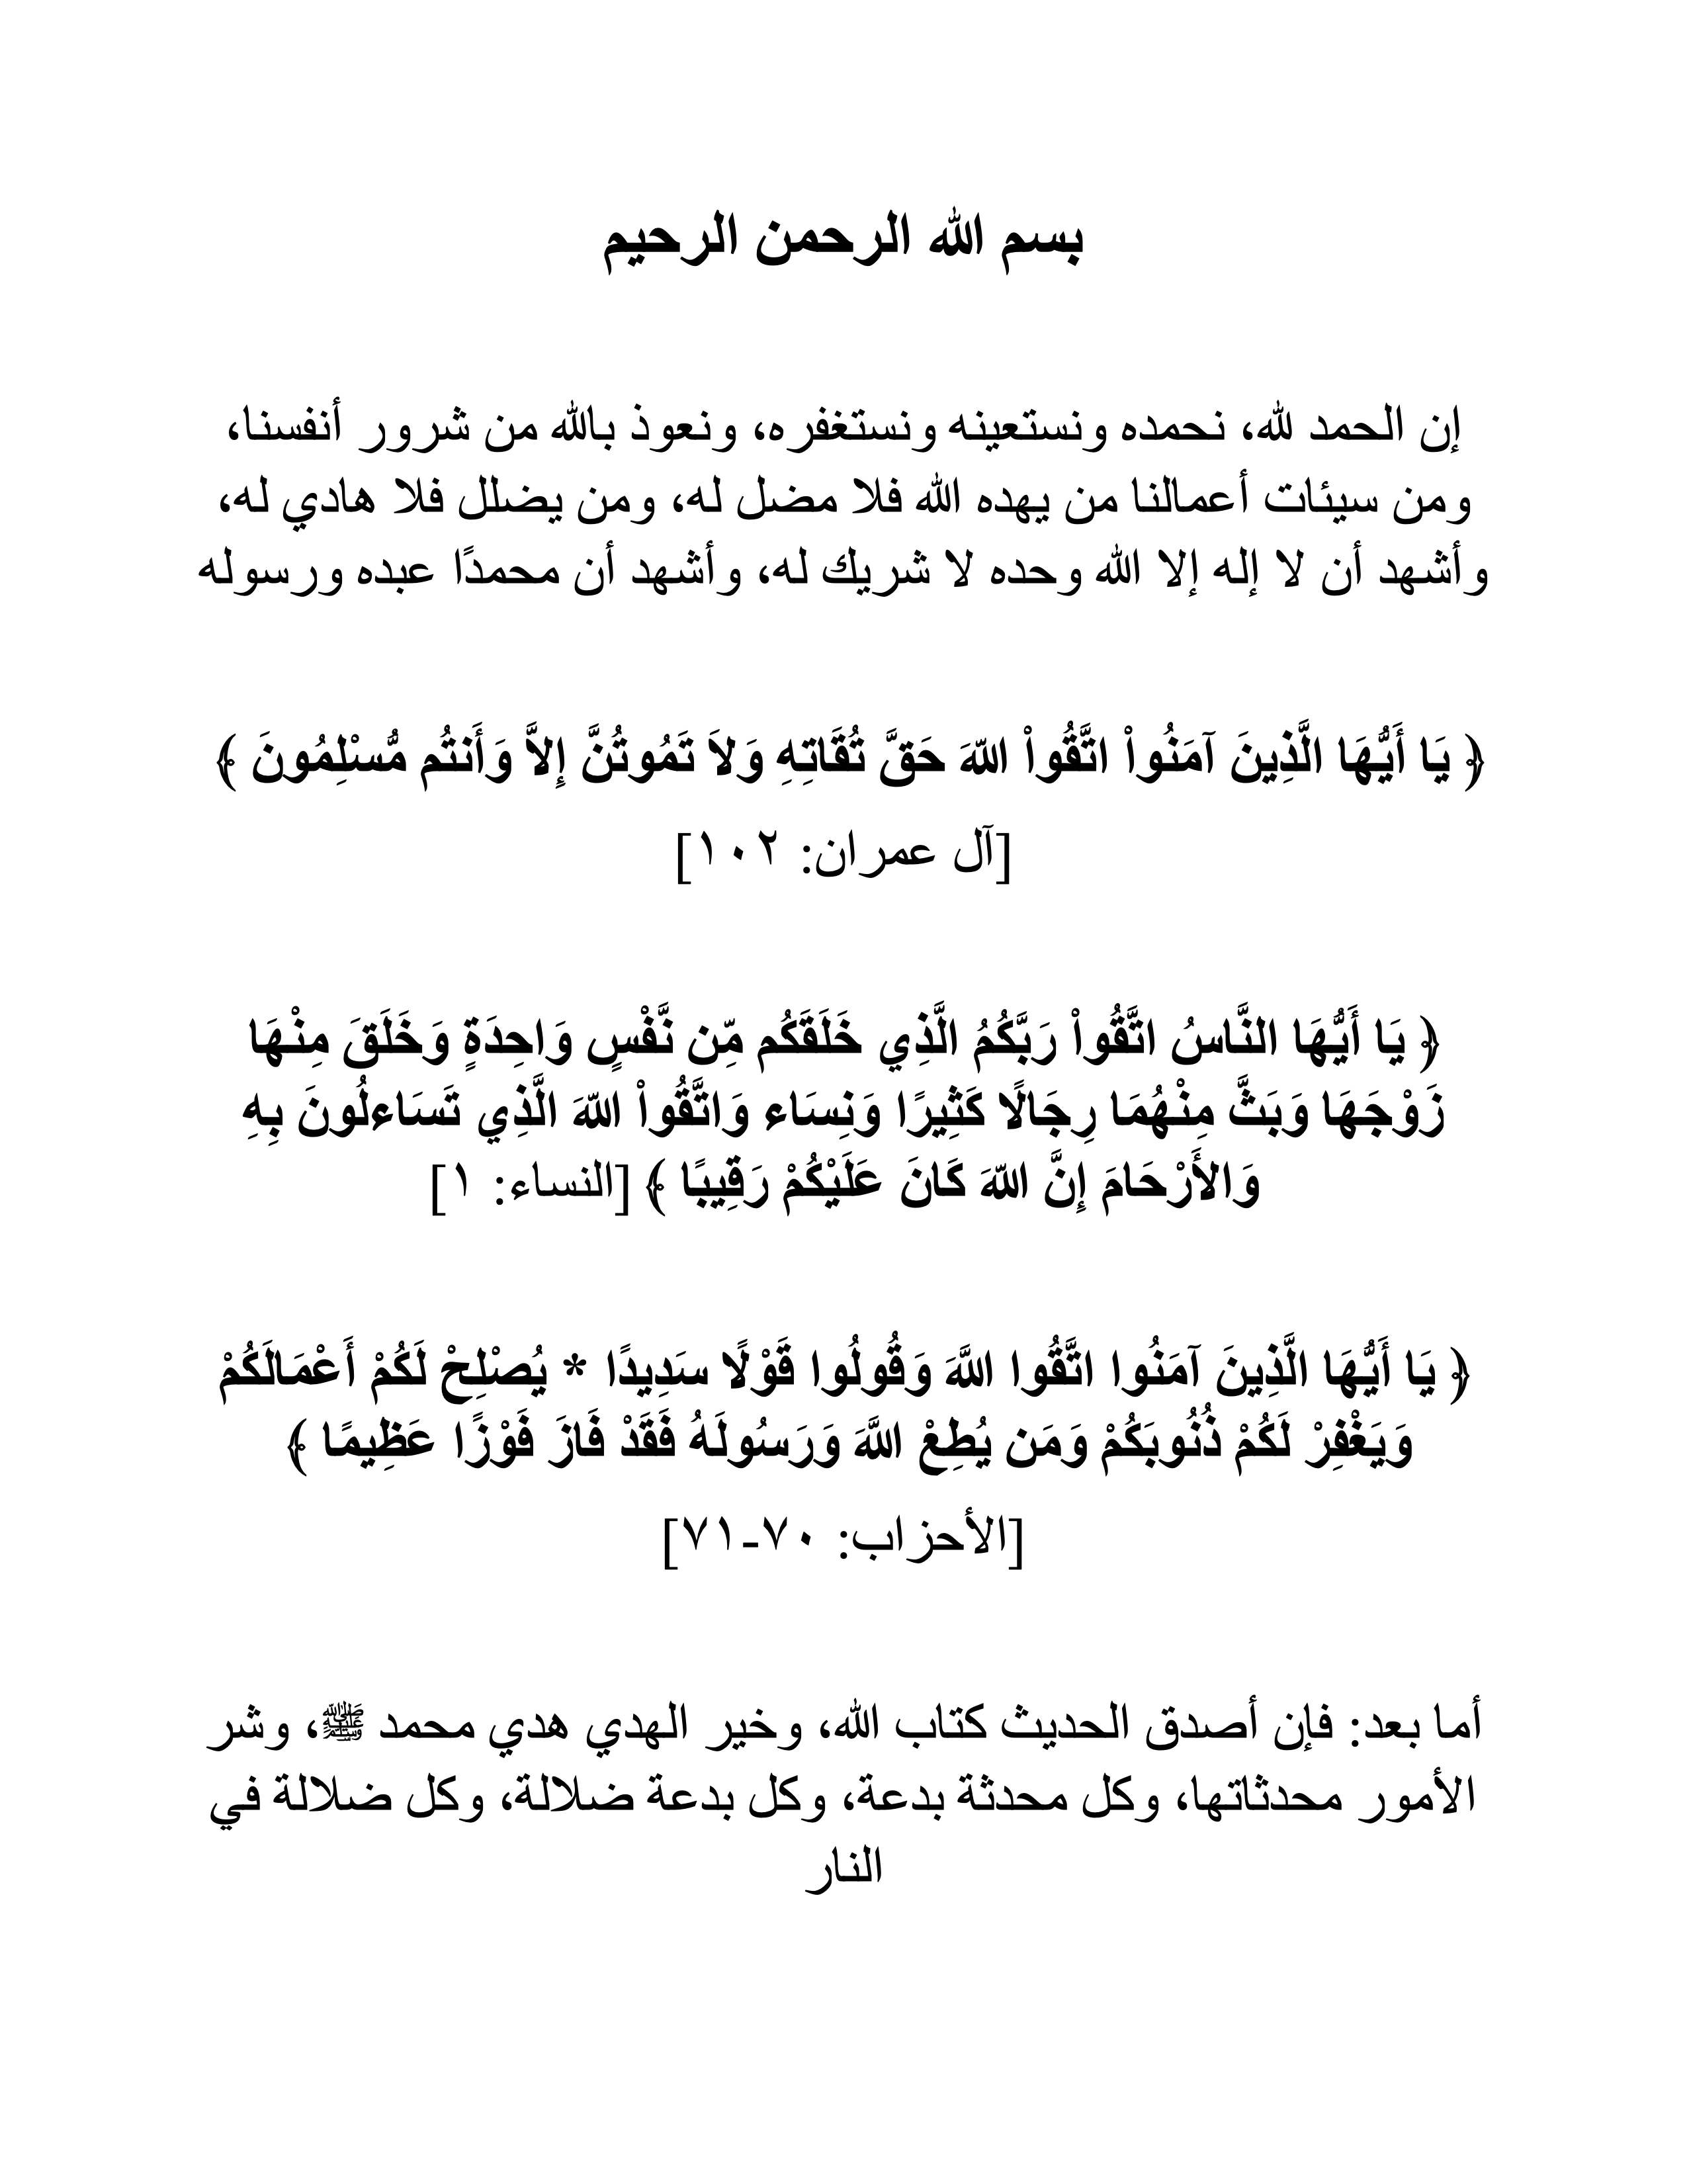 بسم الله الرحمن الرحيم
إن الحمد لله، نحمده ونستعينه ونستغفره، ونعوذ بالله من شرور أنفسنا،
ومن سيئات أعمالنا من يهده الله فلا مضل له، ومن يضلل فلا هادي له،
وأشهد أن لا إله إلا الله وحده لا شريك له، وأشهد أن محمدًا عبده ورسوله
﴿ يَا أَيُّهَا الَّذِينَ آمَنُواْ اتَّقُواْ اللّهَ حَقَّ تُقَاتِهِ وَلاَ تَمُوتُنَّ إِلاَّ وَأَنتُم مُّسْلِمُونَ ﴾
[آل عمران: ١٠٢]
﴿ يَا أَيُّهَا النَّاسُ اتَّقُواْ رَبَّكُمُ الَّذِي خَلَقَكُم مِّن نَّفْسٍ وَاحِدَةٍ وَخَلَقَ مِنْهَا
زَوْجَهَا وَبَثَّ مِنْهُمَا رِجَالًا كَثِيرًا وَنِسَاء وَاتَّقُواْ اللّهَ الَّذِي تَسَاءلُونَ بِهِ
وَالأَرْحَامَ إِنَّ اللّهَ كَانَ عَلَيْكُمْ رَقِيبًا ﴾ [النساء: ١]
﴿ يَا أَيُّهَا الَّذِينَ آمَنُوا اتَّقُوا اللَّهَ وَقُولُوا قَوْلًا سَدِيدًا * يُصْلِحْ لَكُمْ أَعْمَالَكُمْ
وَيَغْفِرْ لَكُمْ ذُنُوبَكُمْ وَمَن يُطِعْ اللَّهَ وَرَسُولَهُ فَقَدْ فَازَ فَوْزًا عَظِيمًا ﴾
[الأحزاب: ٧٠-٧١]
أما بعد: فإن أصدق الحديث كتاب الله، وخير الهدي هدي محمد ﷺ، وشر
الأمور محدثاتها، وكل محدثة بدعة، وكل بدعة ضلالة، وكل ضلالة في
النار